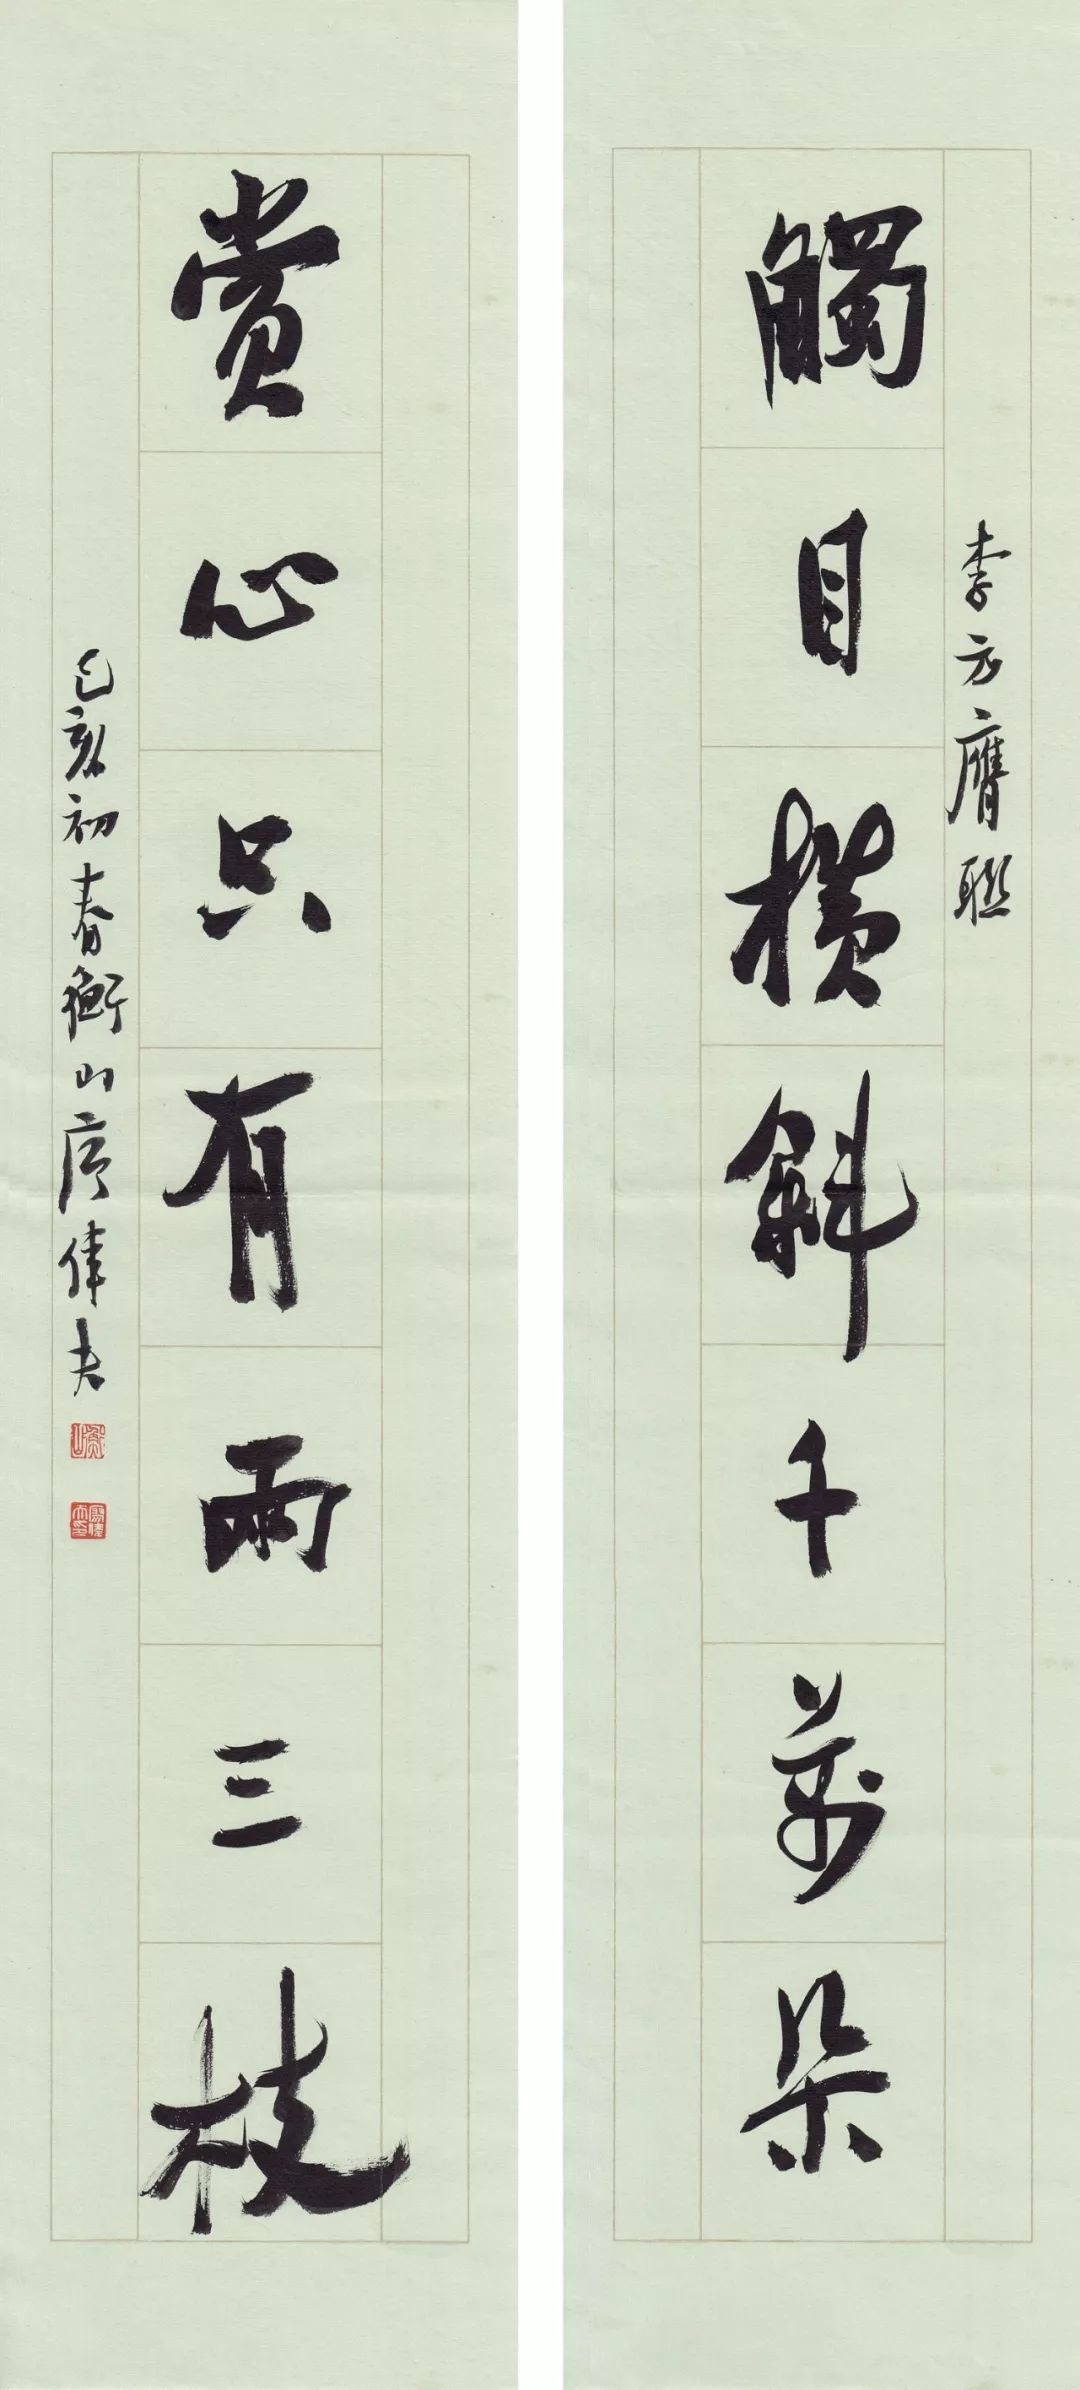 觸目橫斜千萬朵
李方膺聯
賞心只有兩三枝
己亥初春衡山廖偉夫